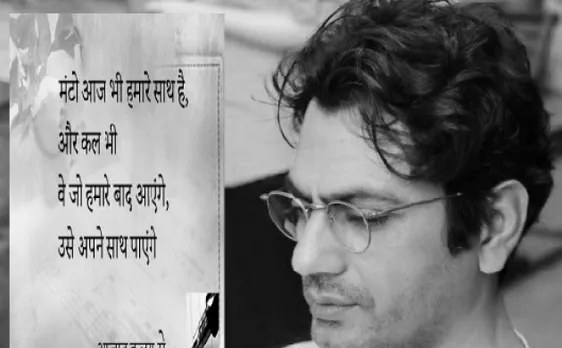 मंटो आज भी हमारे साथ है,
और कल भी
वे जो हमारे बाद आएंगे,
उसे अपने साथ पाएंगे